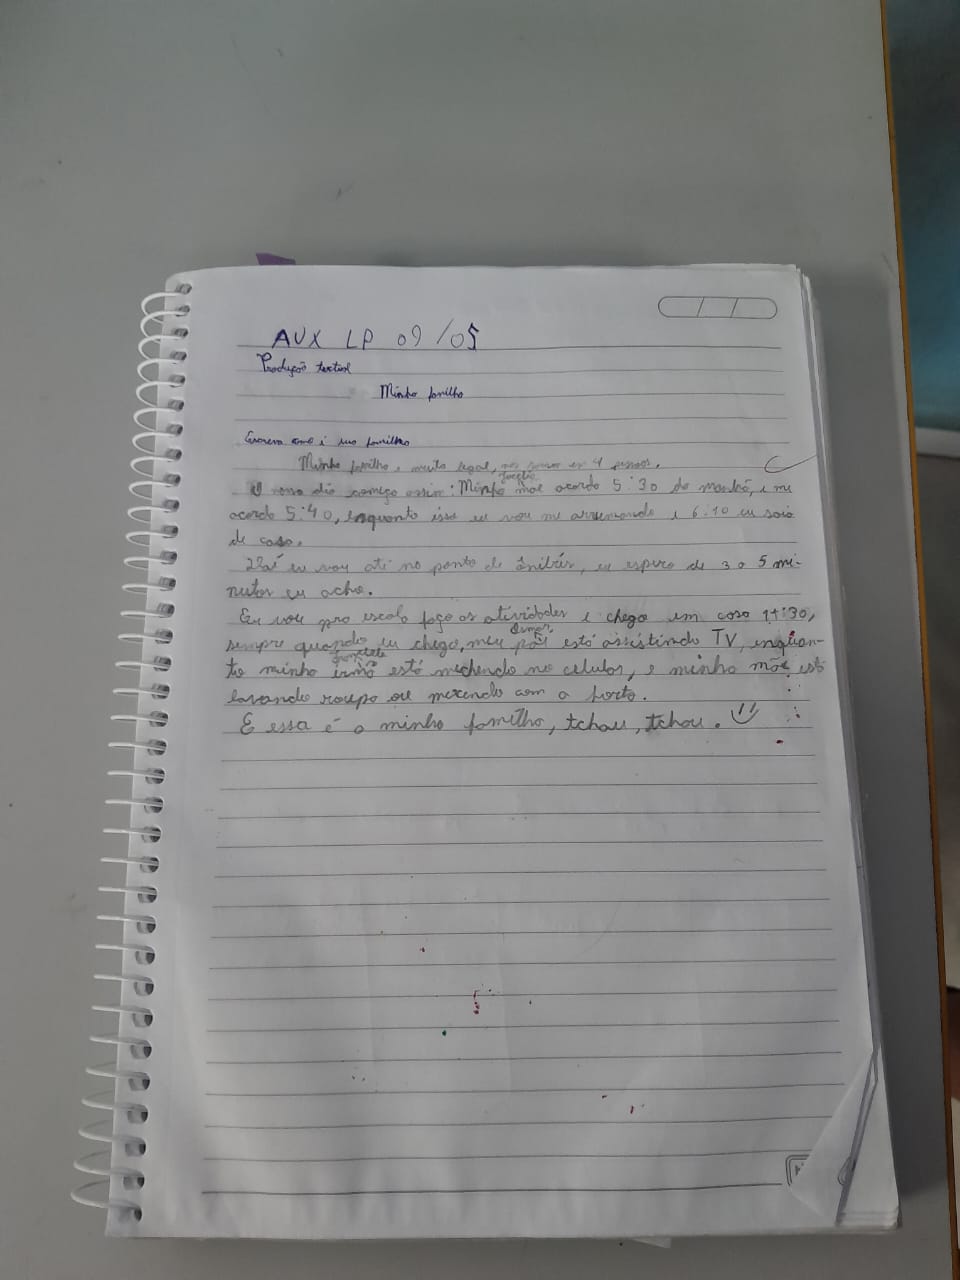 AUX LP 09/05
Produção textual
Minha família
Escreva como é sua família
Minha família é muito legal, nós somos em 4 pessoas.
O nosso dia começa assim: Minha mãe acorda 5:30 da manhã, e me
acorda 5:40, enquanto isso eu vou me arrumando e 6:10 eu saio
de casa.
Daí eu vou até no ponto de ônibus, eu espero de 3 a 5 mi-
nutos eu acho.
Eu vou pra escola faço as atividades e chego em casa 11:30,
sempre quando eu chego, meu pai está assistindo TV, enquan-
to minha irmã está mechendo no celular, e minha mãe está
lavando roupa ou mexendo com a horta.
E essa é a minha família, tchau, tchau.